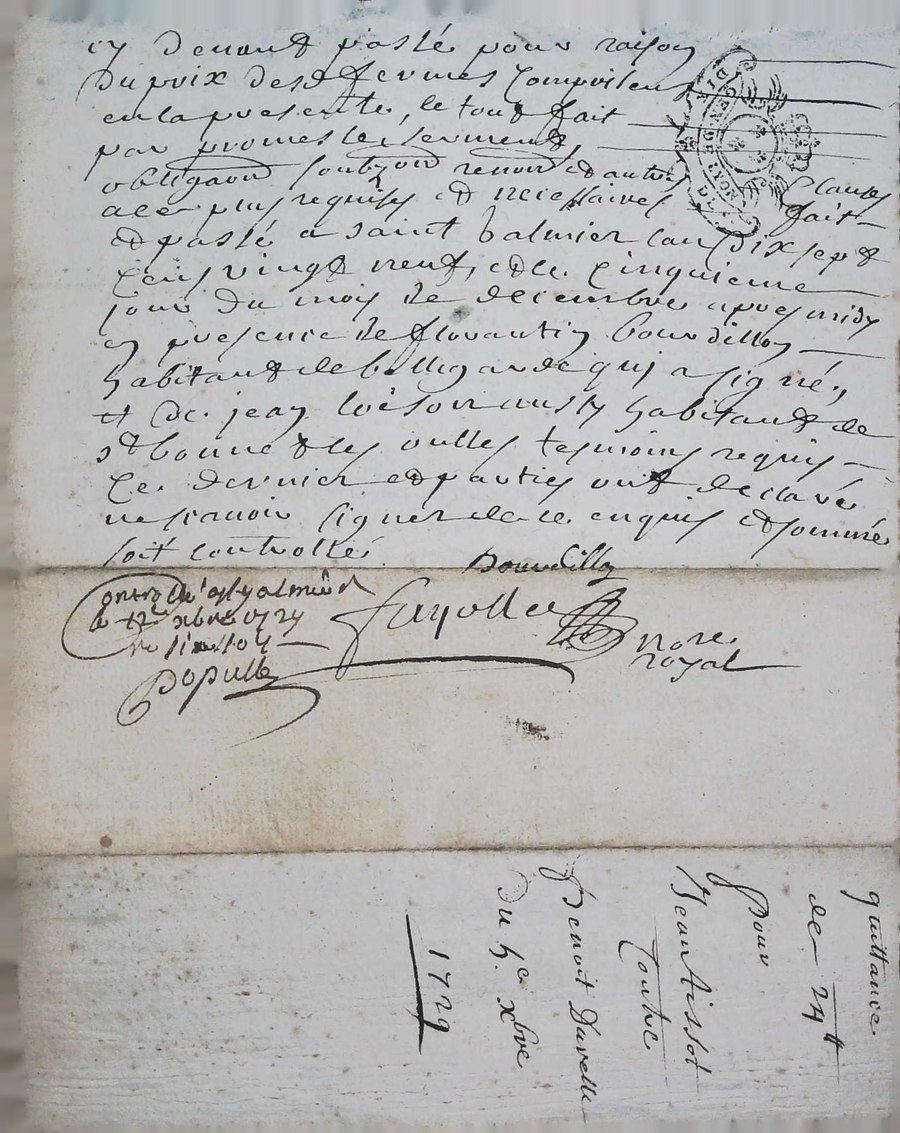 cy devant passé pour raison
du prix desd fermes comprises
en la presente, le tout fait
par promesse serment,
obligaon soubzon renon et autres clauses
a ce plus requises et necessaires fait
et passé a saint balmier lan dix sept
cens vingt neuf, et le cinquieme
jour du mois de decembre apres midy
en presence de florantin bourdillon
habitant de bellegarde qui a signé,
et de jean loison aussy habitant de
st bonnet les oulles tesmoins requis
ce dernier et parties ont declaré
ne scavoir signer de ce enquis et sommé
soit controllé
Bourdillon
GEN DE LYON
Controllé a st galmier
le 12e xbre 1729
Populle
Fayolle
nore
royal
quittance
de 24tt
pour
Jean Tissot
contre
Benoit Duvelle
Du 5e xbre
1729